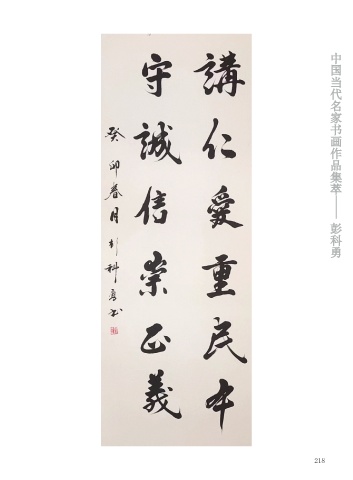 講仁愛重民本
守誠信崇正義
癸卯春月彭科勇书
中国当代名家书画作品集萃——彭科勇
218